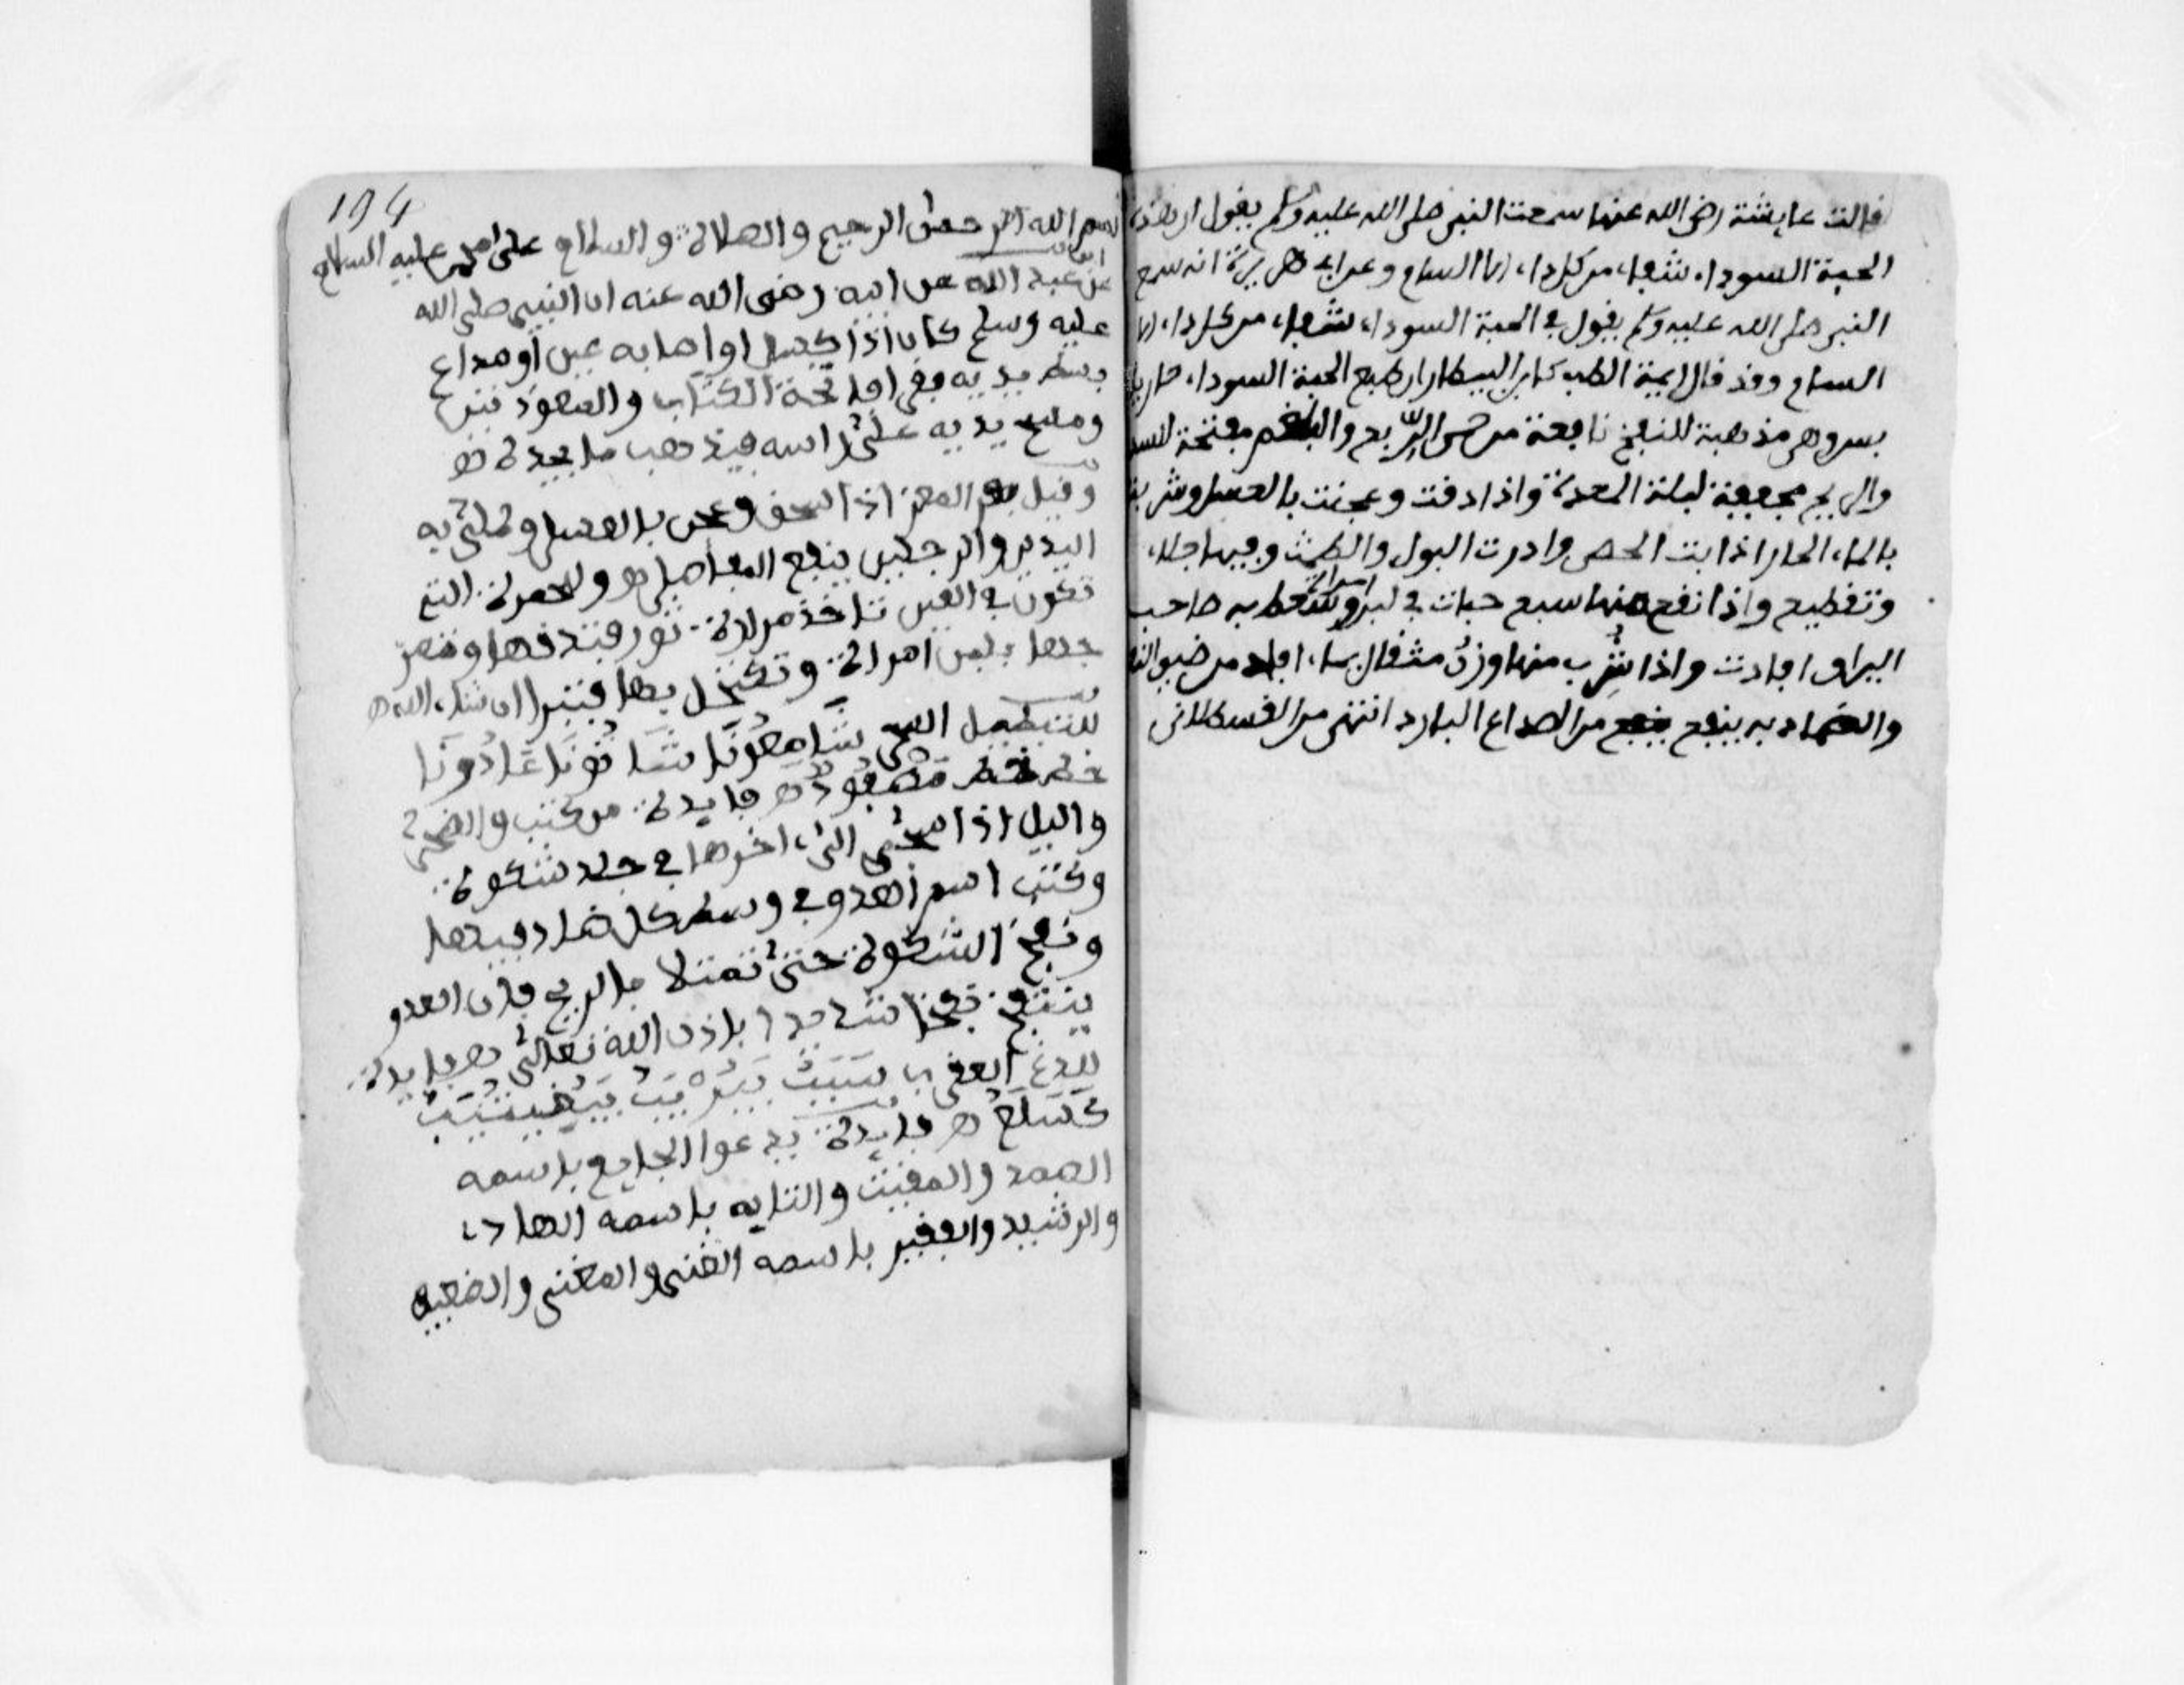 قالت عايشة رضي الله عنها سمعت النبي صلى الله عليه وسلم يقول ان هذه
الحبة السوداء شفاء من كل داء الا السام وعن ابي هريرة انه سمع
النبي صلى الله عليه وسلم يقول في الحبة السوداء شفاء من كل داء الا
السام وقد قال ايمة الطب كابن البيطار ان طبع الحبة السوداء حار يا
بس وهي مذهبة للنفخ نافعة من حمى الربع والبلغم مفتحة للسدد
والريح مجففة لبلة المعدة واذا دقت وعجنت بالعسل وشربت
بالماء الحار اذابت الحصى وادرت البول والطمث وفيها جلاء
وتقطيع واذا نقع منها سبع حبات في لبن امراة وسعط به صاحب
اليرقان افادت واذا شرب منها وزن مثقال بماء افاد من ضيق النفس
والضماد به ينفع ينفع من الصداع البارد انتهى من القسطلاني
194
بسم الله الرحمن الرحيم والصلاة والسلام على احمد عليه السلام
عن عبد الله عن ابيه رضي الله عنه ان النبي صلى الله
عليه وسلم كان اذا او اصابه عين او صداع
بسط يديه فقرا فاتحة الكتاب والمعوذتين
ومسح يديه على راسه فيذهب ما يجده
وقيل المعز اذا اسحق وعجن بالعسل وطلي به
اليدين والرجلين ينفع المفاصل وللحمرة التي
تكون في العين تاخذ مرارة ثور فتدقها
بلبن امراة وتكتحل بها فتبرا ان شاء الله
شَاهُونَا شَا نُونَا عَادُونَا
فايدة من كتب والضحى
واليل اذا سجى الى اخرها في جلد شكوة
وكتب اسم العدو في وسط كل ضاد فيها
ونفخ الشكوة حتى تمتلا بالريح فان العدو
ينتفخ نفخا شديدا باذن الله تعالى فايدة
للدغ العقرب
فايدة يدعوا الجايع باسمه
الصمد والمقيت والتايه باسمه الهادي
والرشيد والفقير باسمه الغني والمغني والضعيف